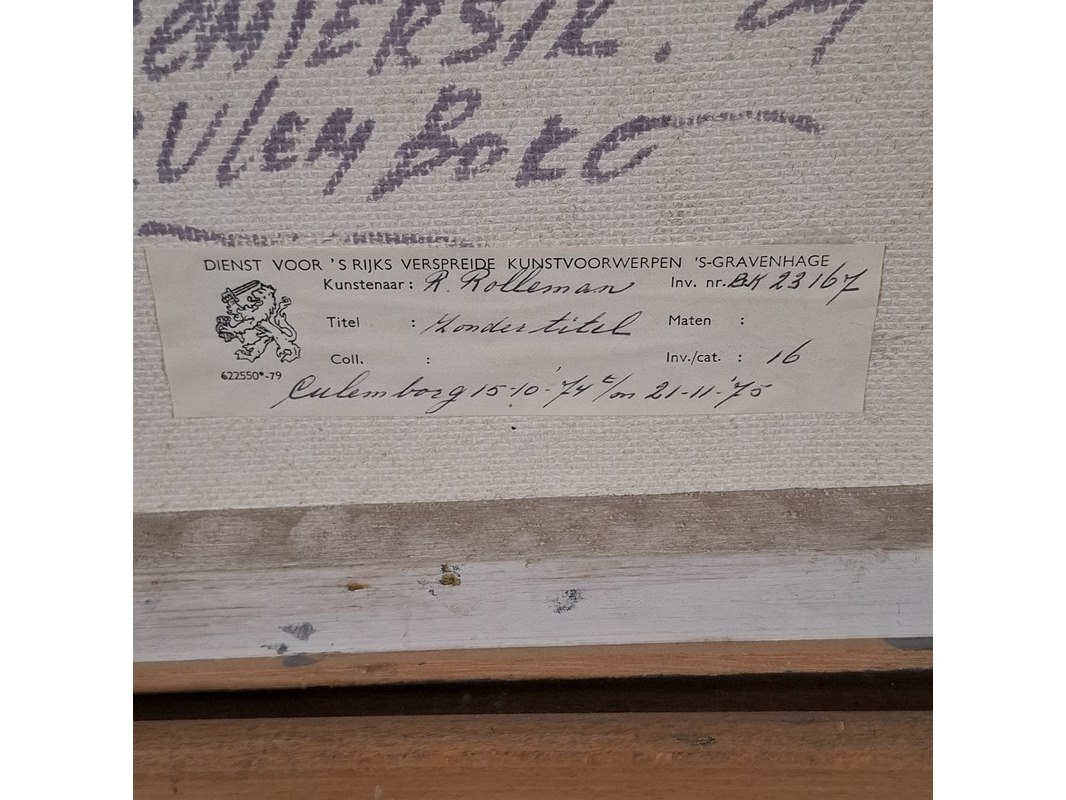 DIENST VOOR 'S RIJKS VERSPREIDE KUNSTVOORWERPEN 'S-GRAVENHAGE
Kunstenaar: R. Rolleman Inv. nr. BK 23167
Titel : Zonder titel Maten :
Coll. : Inv./cat. : 16
622550*-79
Culemborg 15-10-'74 t/m 21-11-'75